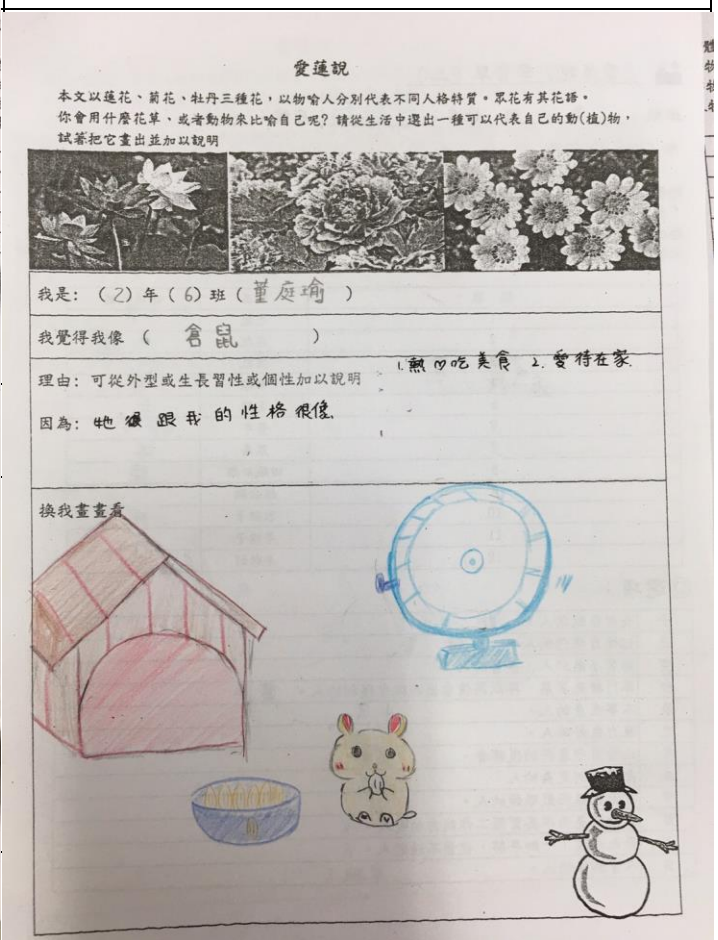 愛蓮說
本文以蓮花、菊花、牡丹三種花,以物喻人分別代表不同人格特質。眾花有其花語。
你會用什麼花草、或者動物來比喻自己呢?請從生活中選出一種可以代表自己的動(植)物,
試著把它畫出並加以說明
我是:(2)年(6)班(董庭瑜)
我覺得我像(倉鼠)
理由:可從外型或生長習性或個性加以說明
1.熱心吃美食 2.愛待在家.
因為:牠 跟我的性格很像.
換我畫畫看